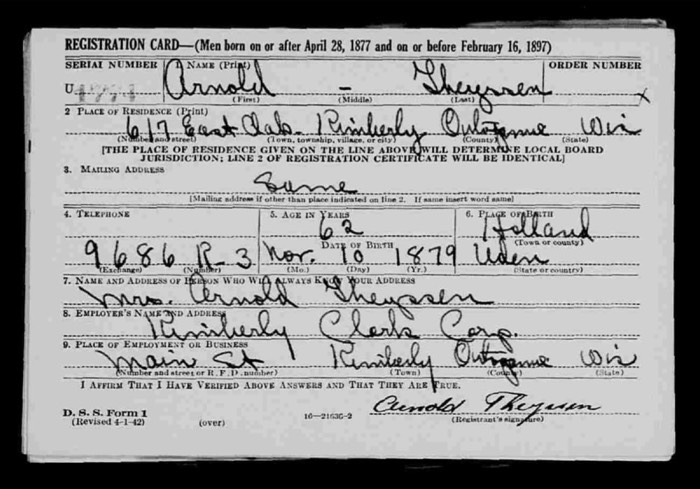 REGISTRATION CARD—(Men born on or after April 28, 1877 and on or before February 16, 1897)
SERIAL NUMBER 1. NAME (Print) ORDER NUMBER
U Arnold - Theyssen
(First) (Middle) (Last)
2 PLACE OF RESIDENCE (Print)
617 East Oak Kimberly Outagamie Wis
(Number and street) (Town, township, village, or city) (County) (State)
[THE PLACE OF RESIDENCE GIVEN ON THE LINE ABOVE WILL DETERMINE LOCAL BOARD
JURISDICTION; LINE 2 OF REGISTRATION CERTIFICATE WILL BE IDENTICAL]
3. MAILING ADDRESS
Same
[Mailing address if other than place indicated on line 2. If same insert word same]
4. TELEPHONE 5. AGE IN YEARS 6. PLACE OF BIRTH
62 Holland
DATE OF BIRTH (Town or county)
9686 R-3 Nov. 10 1879 Uden
(Exchange) (Number) (Mo.) (Day) (Yr.) (State or country)
7. NAME AND ADDRESS OF PERSON WHO WILL ALWAYS KNOW YOUR ADDRESS
Mrs. Arnold Theyssen
8. EMPLOYER'S NAME AND ADDRESS
Kimberly Clark Corp.
9. PLACE OF EMPLOYMENT OR BUSINESS
Main St Kimberly Outagamie Wis
(Number and street or R. F. D. number) (Town) (County) (State)
I AFFIRM THAT I HAVE VERIFIED ABOVE ANSWERS AND THAT THEY ARE TRUE.
D. S. S. Form 1
(Revised 4-1-42) (over) 16—21635-2 Arnold Theyssen
(Registrant's signature)